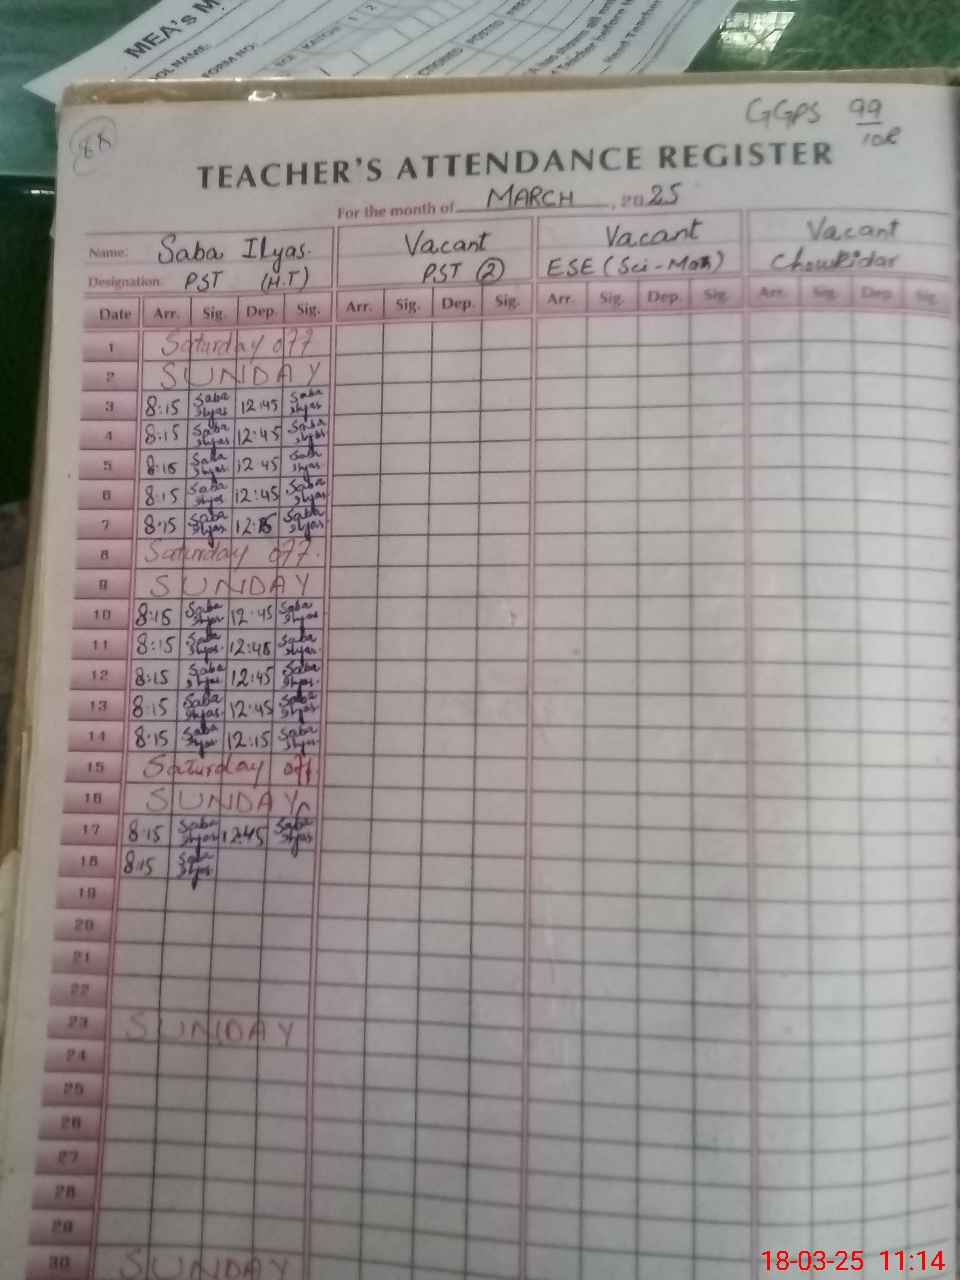 MEA's M
OL NAME:
FORM NO:
8A
GGPS 99/10R
TEACHER'S ATTENDANCE REGISTER
For the month of MARCH, 2025
Name: Saba Ilyas. Vacant Vacant Vacant
Designation: PST (H.T) PST (2) ESE (Sci-Math) Chowkidar
Date Arr. Sig. Dep. Sig. Arr. Sig. Dep. Sig. Arr. Sig. Dep. Sig. Arr. Sig. Dep. Sig.
1 Saturday off
2 SUNDAY
3 8:15 Saba Ilyas 12:45 Saba Ilyas
4 8:15 Saba Ilyas 12:45 Saba Ilyas
5 8:15 Saba Ilyas 12:45 Saba Ilyas
6 8:15 Saba Ilyas 12:45 Saba Ilyas
7 8:15 Saba Ilyas 12:15 Saba Ilyas
8 Saturday off.
9 SUNDAY
10 8:15 Saba Ilyas 12:45 Saba Ilyas
11 8:15 Saba Ilyas 12:45 Saba Ilyas
12 8:15 Saba Ilyas 12:45 Saba Ilyas
13 8:15 Saba Ilyas 12:45 Saba Ilyas
14 8:15 Saba Ilyas 12:15 Saba Ilyas
15 Saturday off
16 SUNDAY
17 8:15 Saba Ilyas 12:45 Saba Ilyas
18 8:15 Saba Ilyas
19
20
21
22
23 SUNDAY
24
25
26
27
28
29
30 SUNDAY
18-03-25 11:14